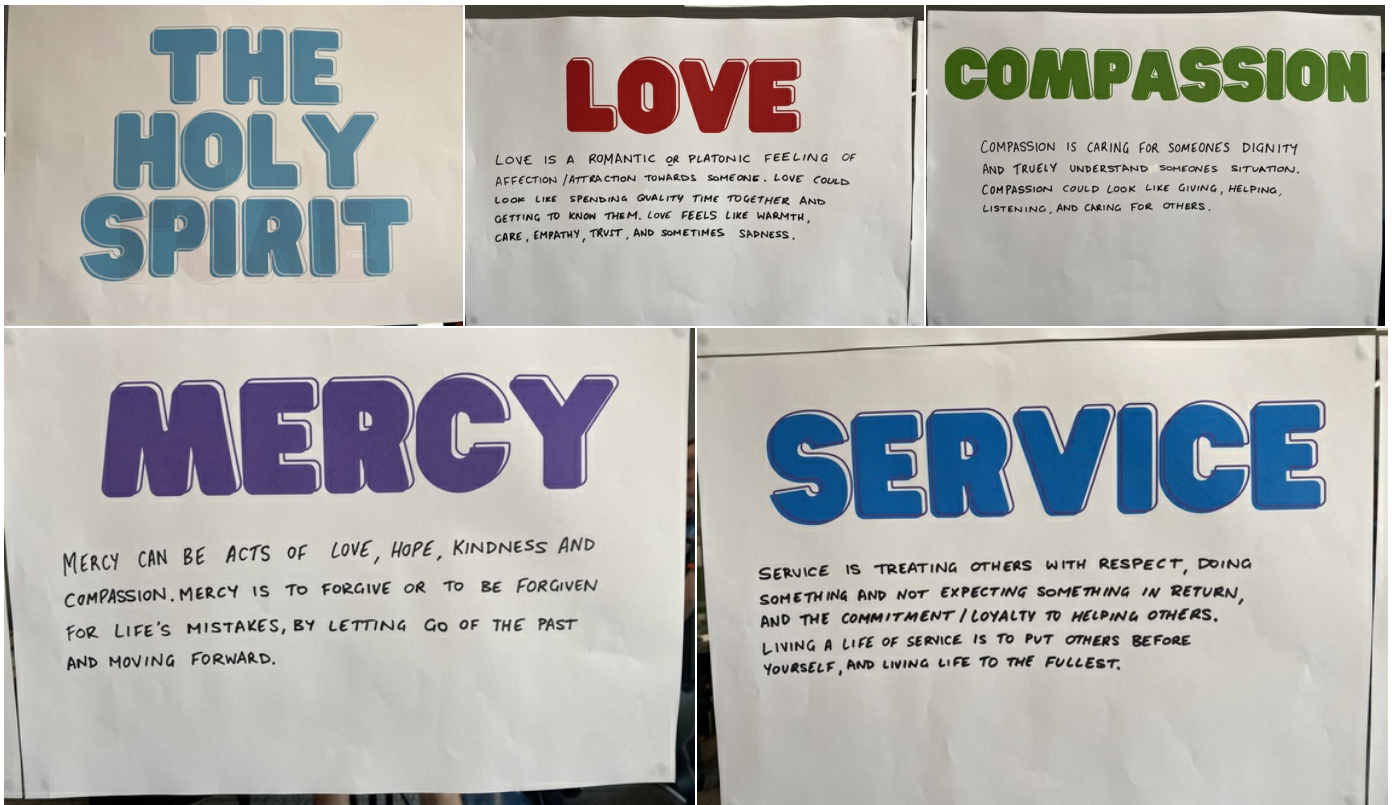 THE
HOLY
SPIRIT
LOVE
LOVE IS A ROMANTIC OR PLATONIC FEELING OF
AFFECTION/ATTRACTION TOWARDS SOMEONE. LOVE COULD
LOOK LIKE SPENDING QUALITY TIME TOGETHER AND
GETTING TO KNOW THEM. LOVE FEELS LIKE WARMTH,
CARE, EMPATHY, TRUST, AND SOMETIMES SADNESS.
COMPASSION
COMPASSION IS CARING FOR SOMEONES DIGNITY
AND TRUELY UNDERSTAND SOMEONES SITUATION.
COMPASSION COULD LOOK LIKE GIVING, HELPING,
LISTENING, AND CARING FOR OTHERS.
MERCY
MERCY CAN BE ACTS OF LOVE, HOPE, KINDNESS AND
COMPASSION. MERCY IS TO FORGIVE OR TO BE FORGIVEN
FOR LIFE'S MISTAKES, BY LETTING GO OF THE PAST
AND MOVING FORWARD.
SERVICE
SERVICE IS TREATING OTHERS WITH RESPECT, DOING
SOMETHING AND NOT EXPECTING SOMETHING IN RETURN,
AND THE COMMITMENT/LOYALTY TO HELPING OTHERS.
LIVING A LIFE OF SERVICE IS TO PUT OTHERS BEFORE
YOURSELF, AND LIVING LIFE TO THE FULLEST.